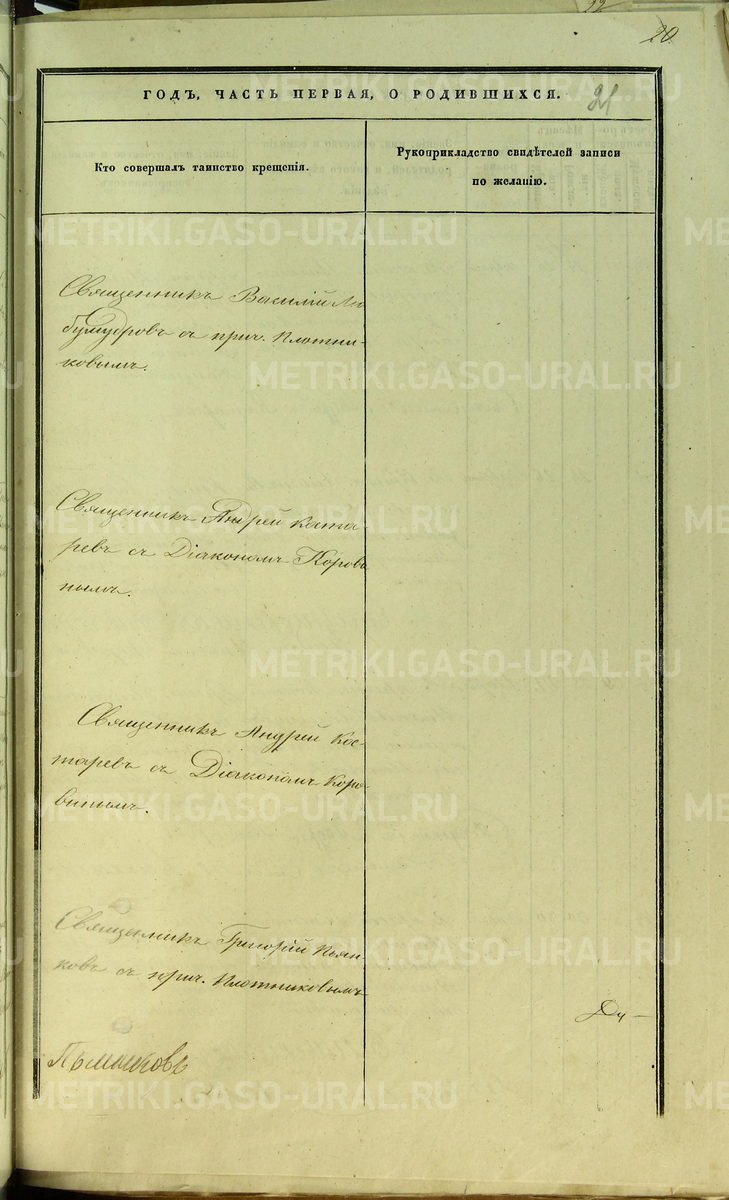 22
20
ГОДЪ, ЧАСТЬ ПЕРВАЯ, О РОДИВШИХСЯ.
21
Кто совершалъ таинство крещенія.
Рукоприкладство свидѣтелей записи
по желанію.
Священникъ Василій Лю
бумудровъ съ прич. Плотни-
ковымъ.
Священникъ Андрей Коста
ревъ съ Діакономъ Корови
нымъ.
Священникъ Андрей Кос-
таревъ съ Діакономъ Коро-
винымъ.
Священникъ Григорій Пьян
ковъ съ прич. Плотниковымъ
METRIKI.GASO-URAL.RU